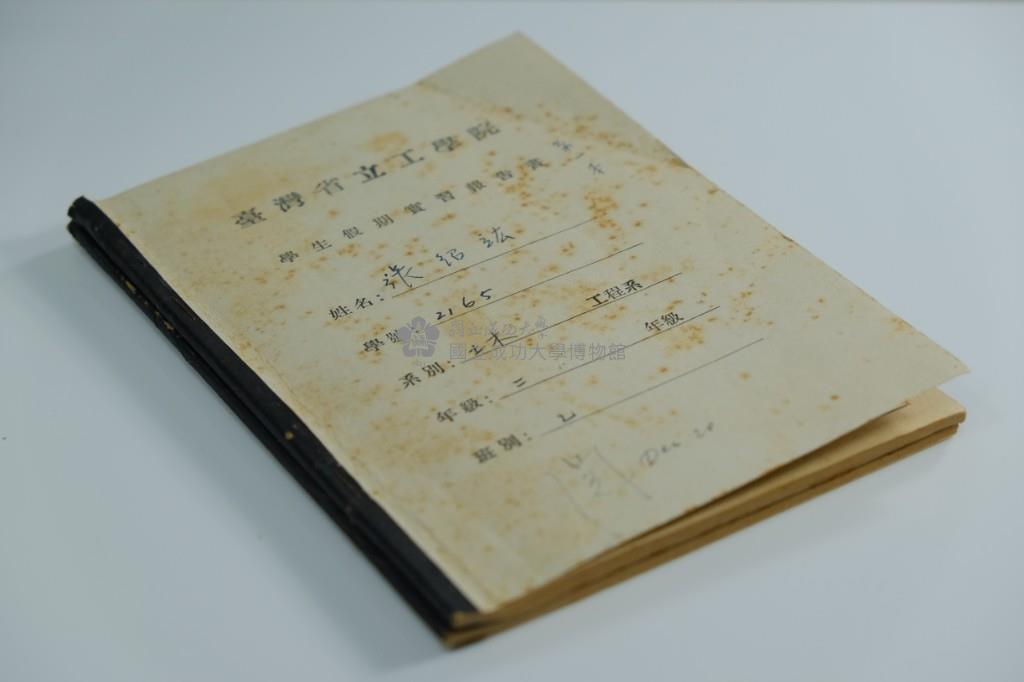 臺灣省立工學院
學生假期實習報告書 第一本
姓名: 張紹竑
學號: 2165
系別: 土木 工程系
年級: 三 年級
班別: 乙
Dec 20
國立成功大學
國立成功大學博物館